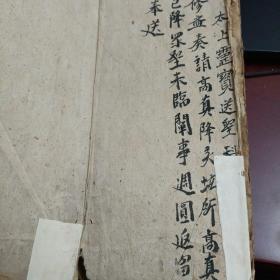 太上靈寶送聖科
修齋奏請高真降灵坛所高真
已降眾聖未臨闌事週圓返
奉送